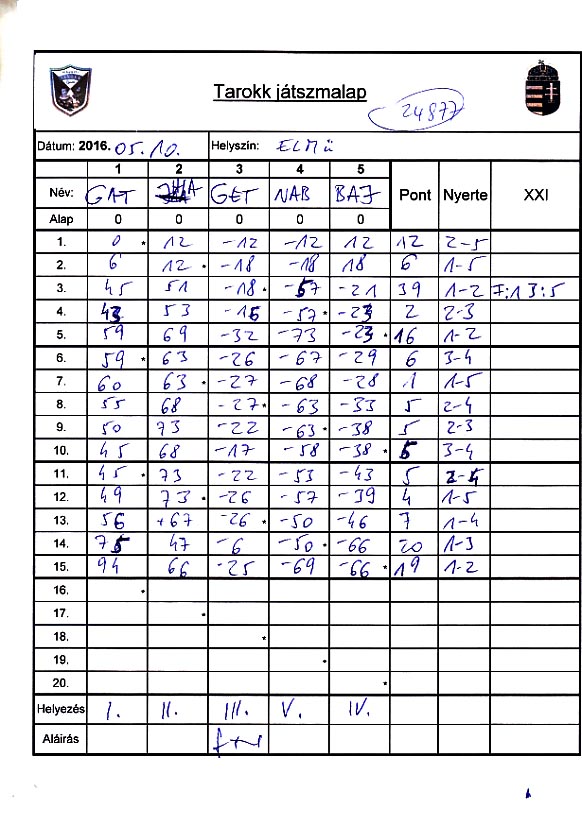 Tarokk játszmalap
24877
Dátum: 2016. 05.10. Helyszín: ELMŰ
1 2 3 4 5
Név: GAT GET NAB BAJ Pont Nyerte XXI
Alap 0 0 0 0 0
1. 0 * 12 -12 -12 12 12 2-5
2. 6 12 * -18 -18 18 6 1-5
3. 45 51 -18 * -57 -21 39 1-2 F:13:5
4. 43 53 -16 -57 * -23 2 2-3
5. 59 69 -32 -73 -23 * 16 1-2
6. 59 * 63 -26 -67 -29 6 3-4
7. 60 63 * -27 -68 -28 1 1-5
8. 55 68 -27 * -63 -33 5 2-4
9. 50 73 -22 -63 * -38 5 2-3
10. 45 68 -17 -58 -38 * 5 3-4
11. 45 * 73 -22 -53 -43 5 2-4
12. 49 73 * -26 -57 -39 4 1-5
13. 56 +67 -26 * -50 -46 7 1-4
14. 75 47 -6 -50 * -66 20 1-3
15. 94 66 -25 -69 -66 * 19 1-2
16. *
17. *
18. *
19. *
20. *
Helyezés I. II. III. V. IV.
Aláírás